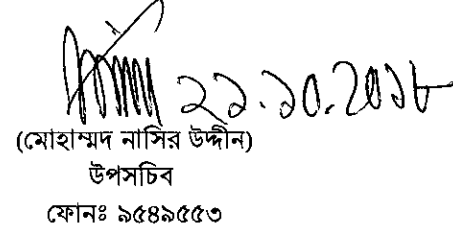 ২১.১০.২০১৮
(মোহাম্মদ নাসির উদ্দীন)
উপসচিব
ফোনঃ ৯৫৪৯৫৫৩